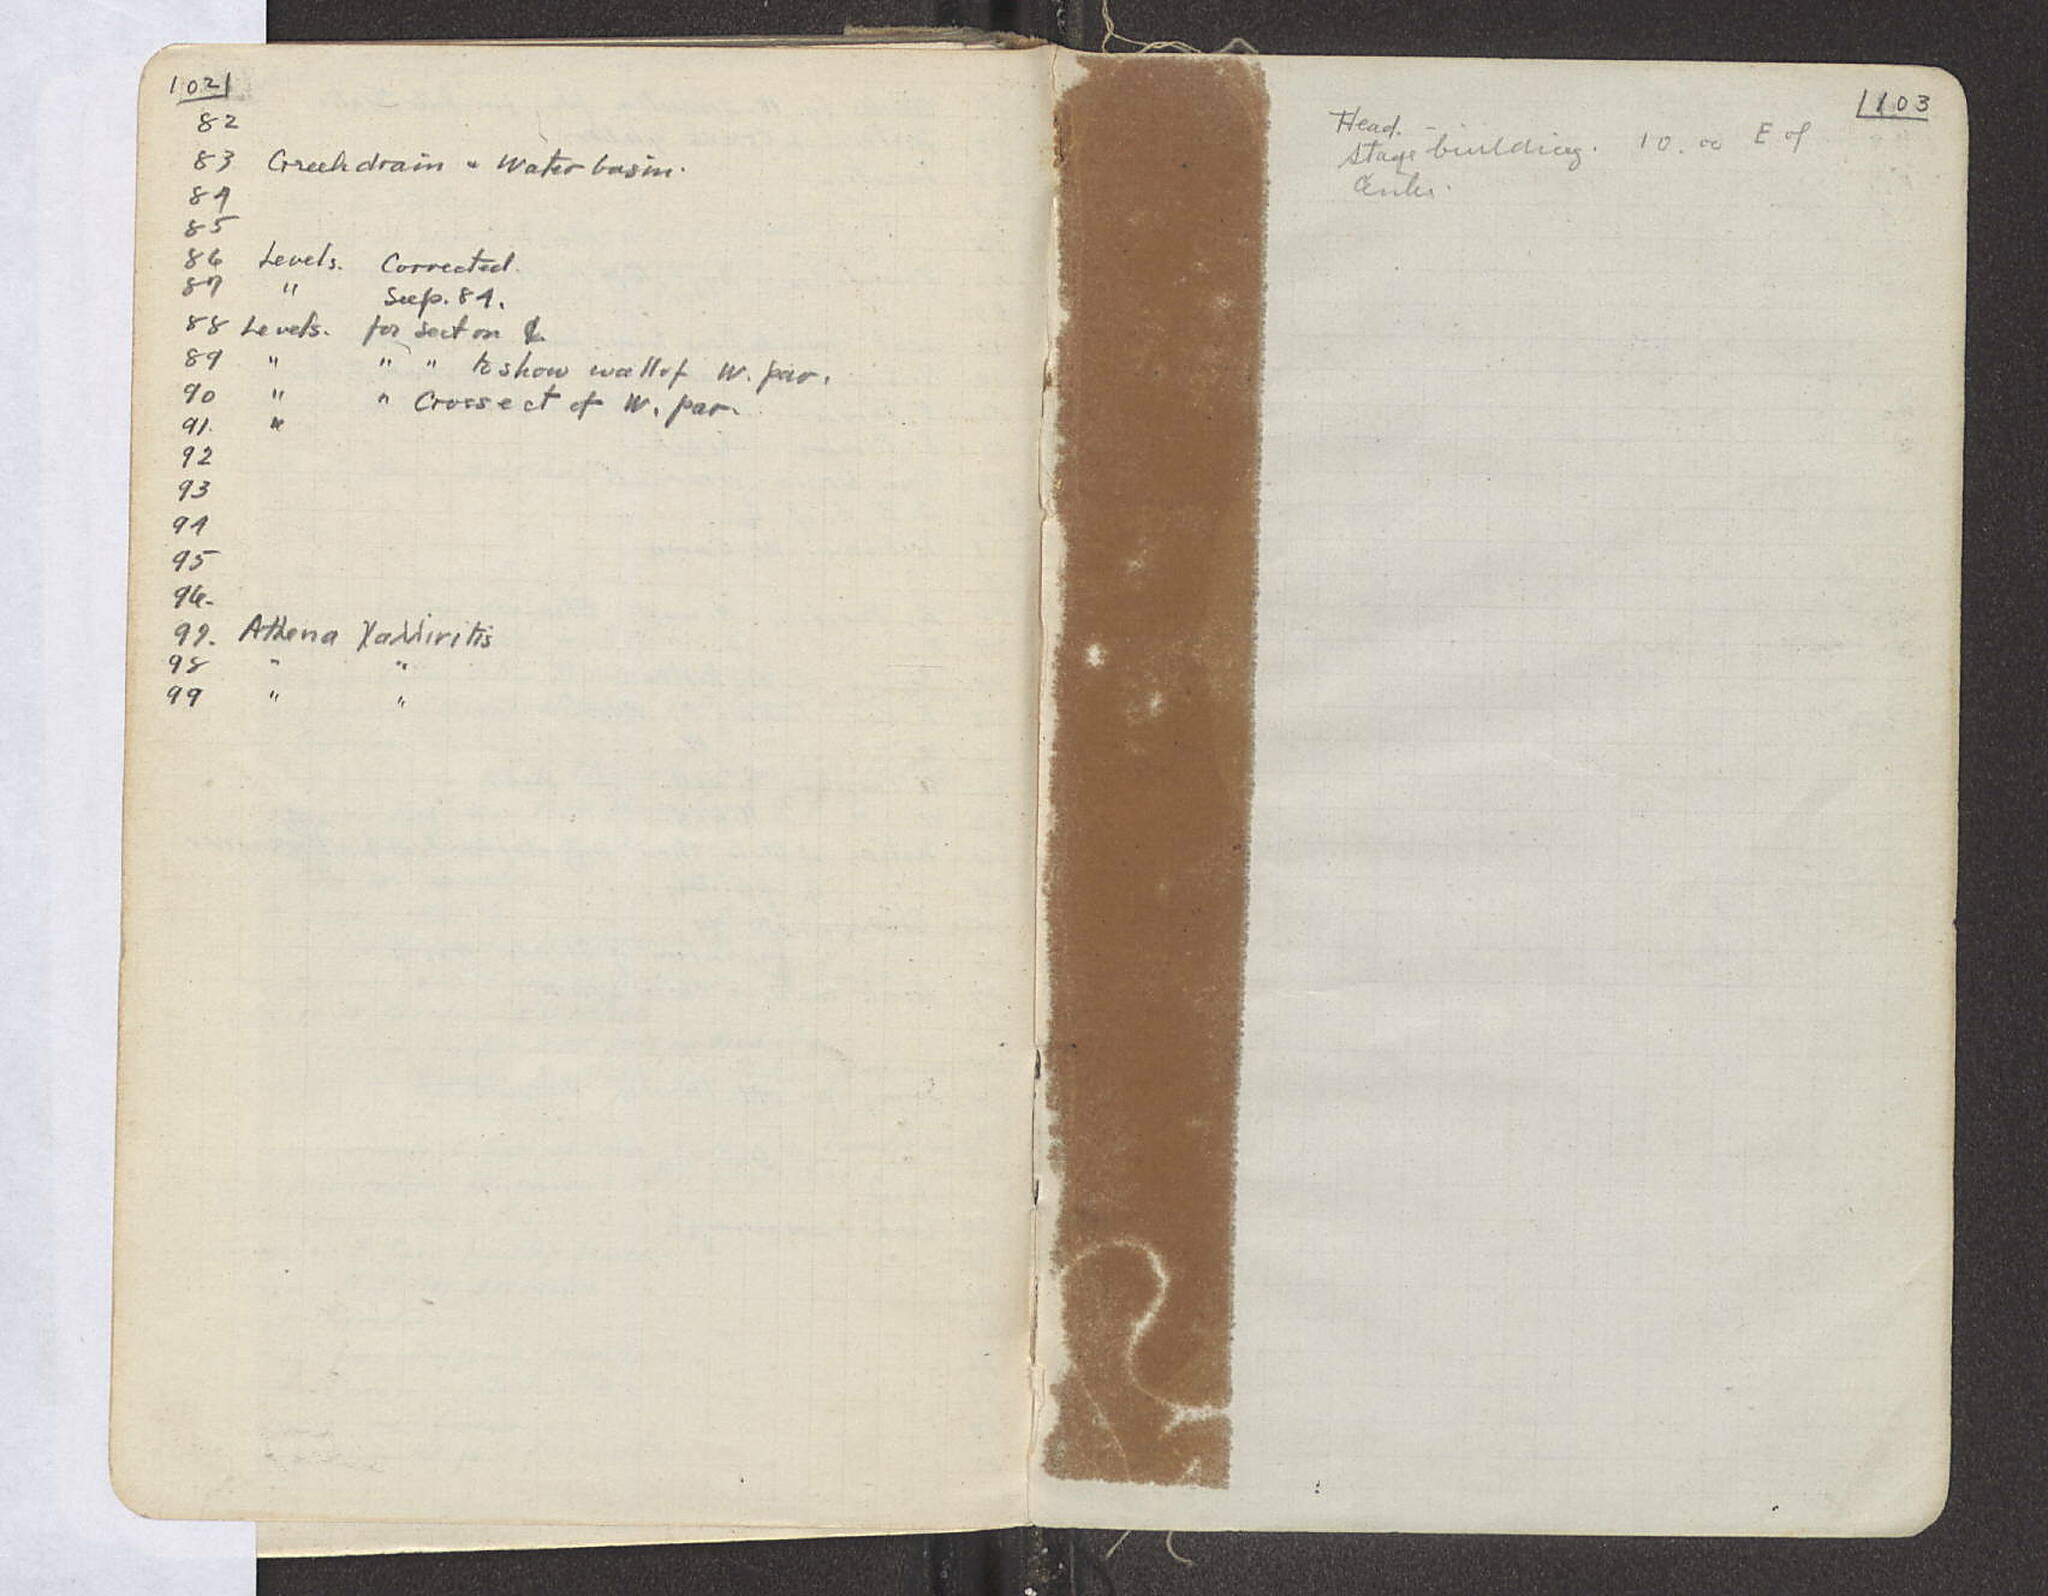 102
82
83 Greek drain & Water basin.
84
85
86 Levels. Corrected.
87 " See p. 84.
88 Levels. for section ℄
89 " " " to show wall of W. par.
90 " " Crossect of W. par.
91. "
92
93
94
95
96.
97. Athena Χαλινιτις
98 " "
99 " "
103
Head. -
Stage building. 10.00 E of
Center.